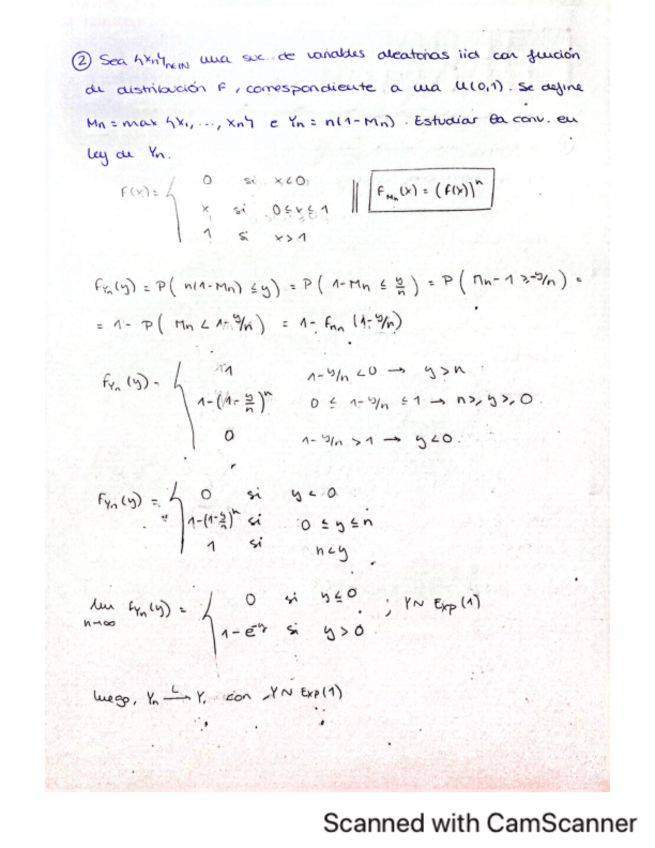 ② Sea {Xn}n∈ℕ una suc. de variables aleatorias iid con función
de distribución F, correspondiente a una U(0,1). Se define
Mn = max {X1, ..., Xn} e Yn = n(1-Mn). Estudiar la conv. en
ley de Yn.
F(x) = { 0 si x<0
x si 0≤x≤1
1 si x>1
|| F_Mn(x) = (F(x))^n
F_Yn(y) = P( n(1-Mn) ≤ y) = P( 1-Mn ≤ y/n ) = P( Mn-1 ≥ -y/n) =
= 1- P( Mn < 1-y/n ) = 1- F_Mn (1-y/n)
F_Yn(y) = { 1 1-y/n <0 → y>n
1-(1-y/n)^n 0 ≤ 1-y/n ≤ 1 → n≥y≥0.
0 1-y/n >1 → y<0.
F_Yn(y) = { 0 si y<0
1-(1-y/n)^n si 0≤y≤n
1 si n<y
lim n→∞ F_Yn(y) = { 0 si y≤0
1-e^-y si y>0
; Y~Exp(1)
luego, Yn →^L Y, con Y~Exp(1)
Scanned with CamScanner